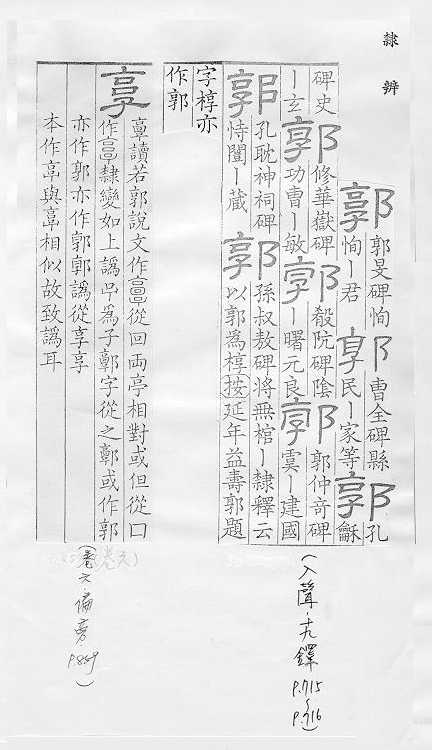 隸辨
郭 郭旻碑恂
恂丨君
郭 曹全碑縣
民丨家等
郭 孔
龢
碑史
丨玄
郭 修華嶽碑
功曹丨敏
郭 殽阬碑陰
丨曙元良
郭 郭仲奇碑
虞丨建國
郭 孔耽神祠碑
恃闓丨藏
郭 孫叔敖碑將無棺丨隸釋云
以郭為椁按延年益壽郭題
字椁亦
作郭
(入聲·十九鐸 P.715~P.716)
享 𩫏讀若郭說文作𩫏從回兩亭相對或但從口
作𩫏隸變如上譌為子鄣字從之鄣或作郭
亦作郭亦作郭郭譌從享享
本作亯與相似故致譌耳
(卷六·偏旁 P.859)